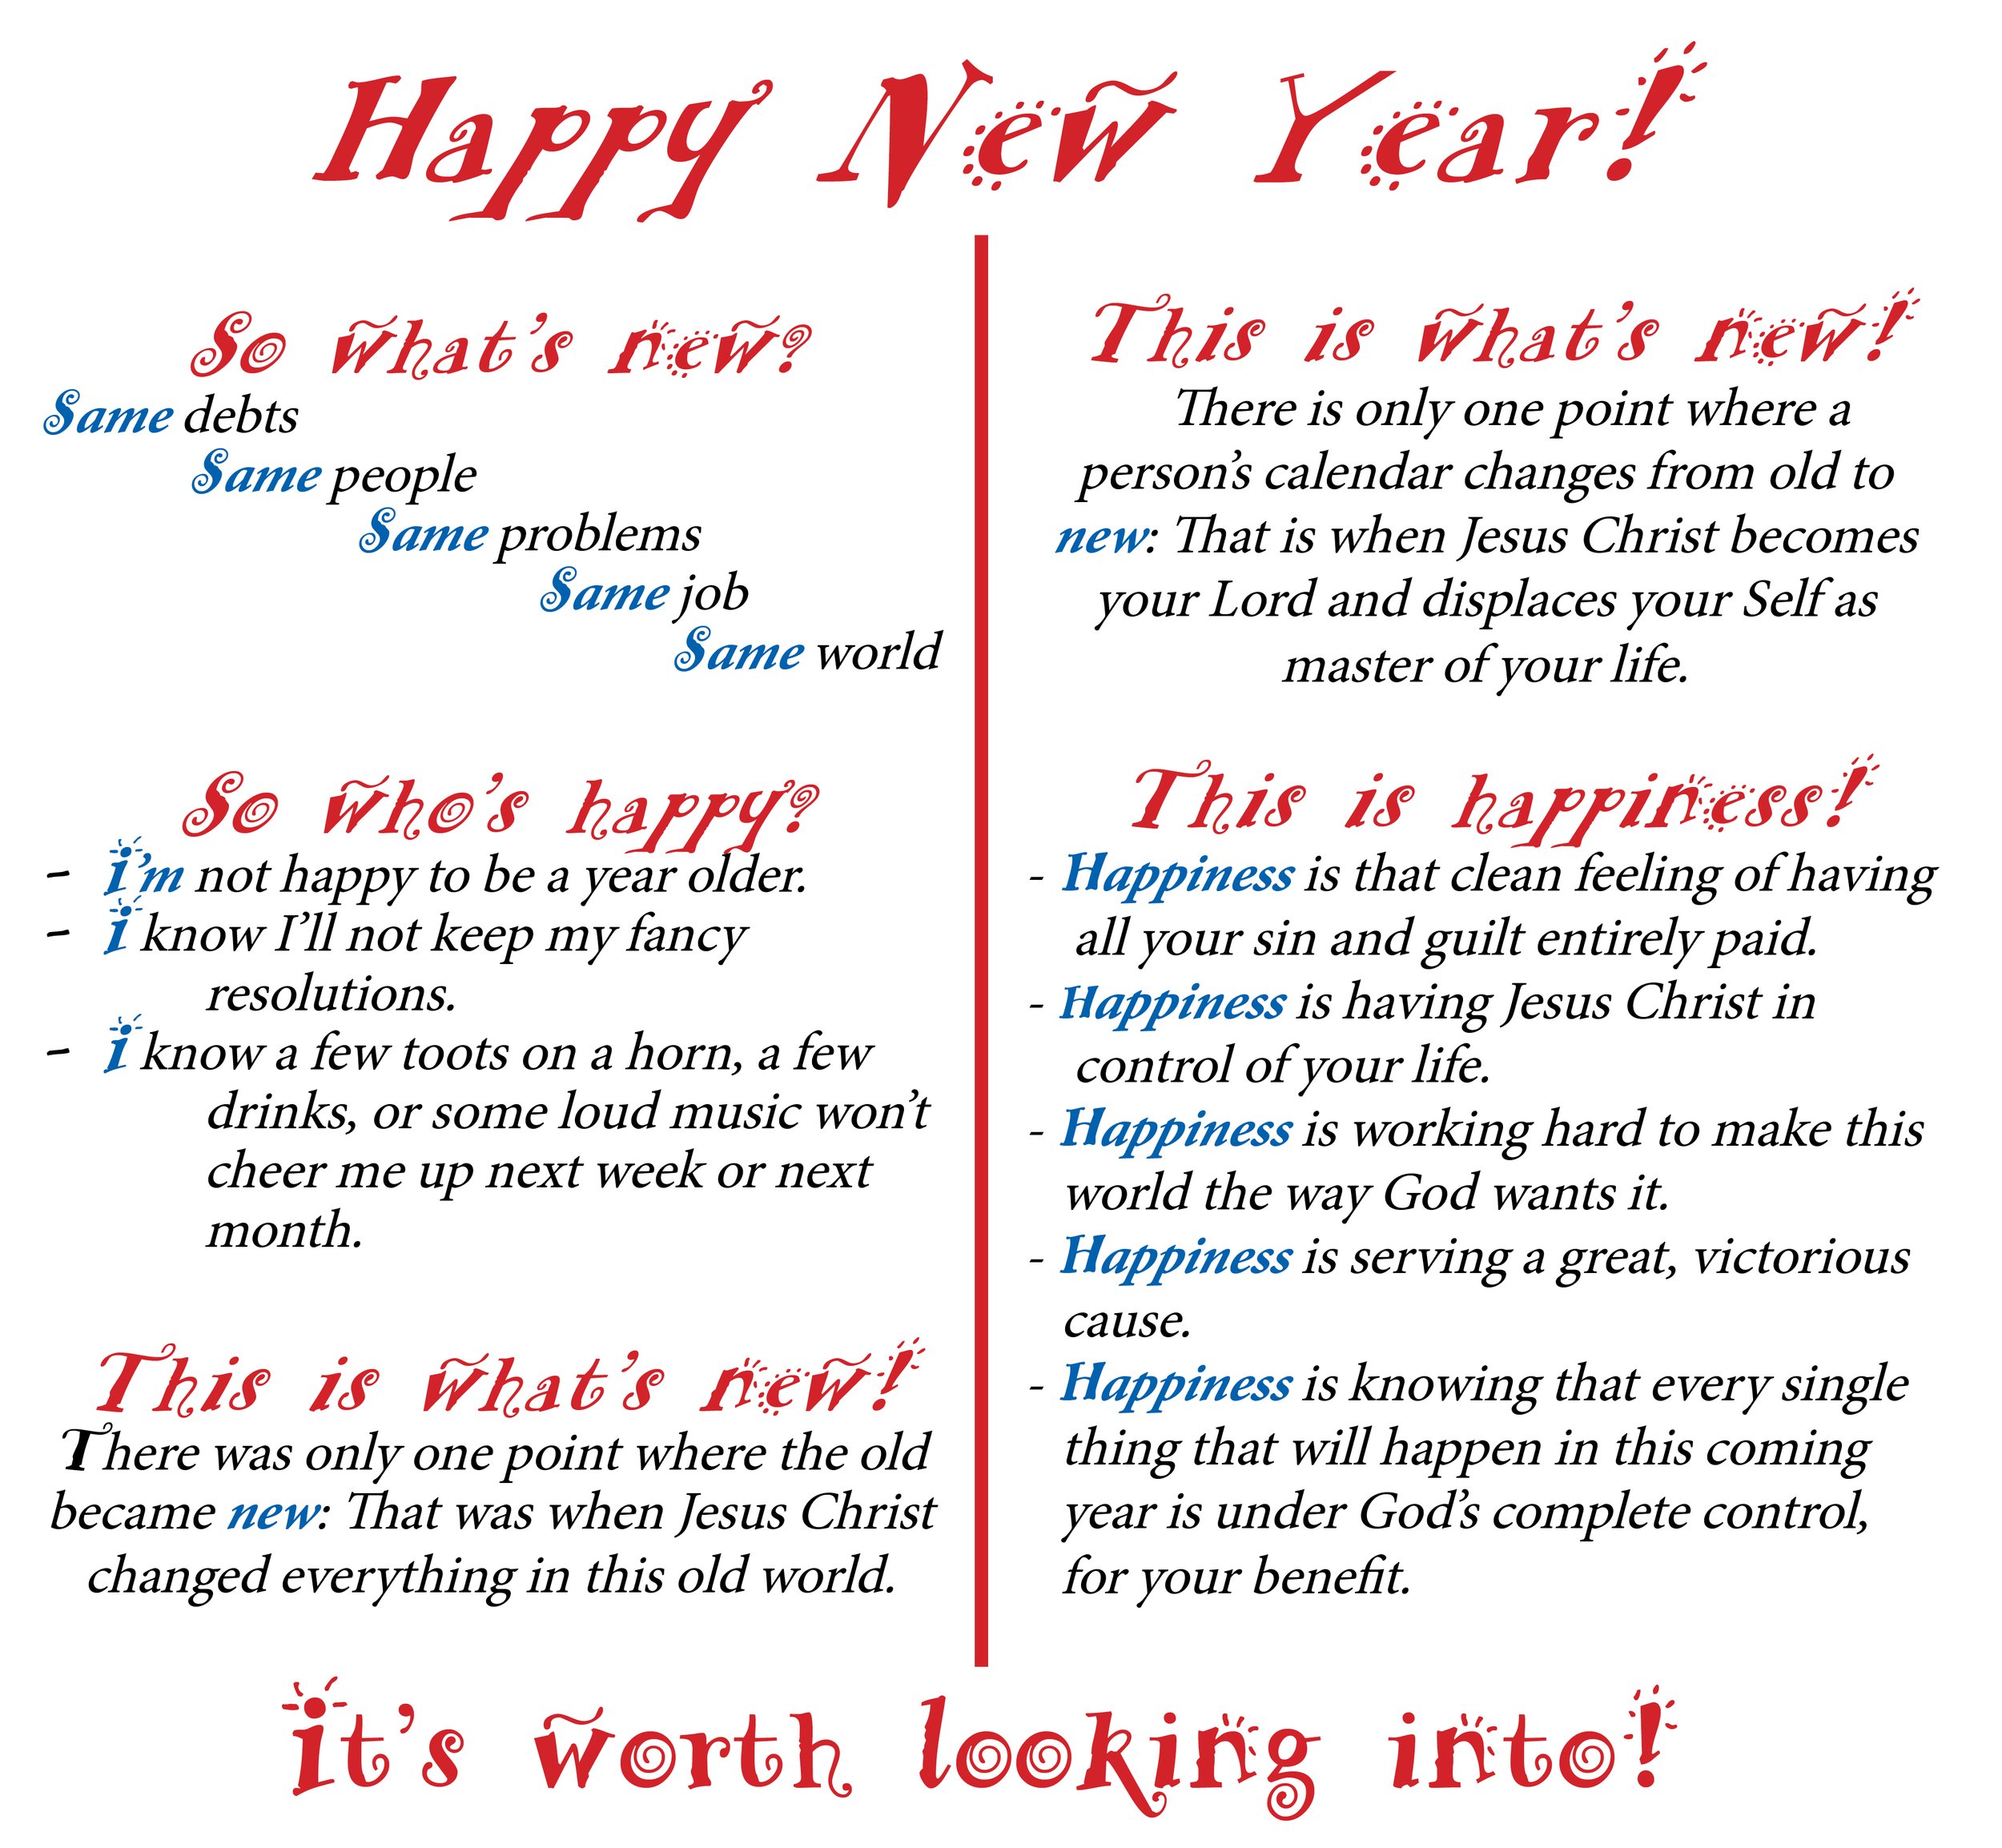 Happy New Year!
So what's new?
Same debts
Same people
Same problems
Same job
Same world
So who's happy?
- i'm not happy to be a year older.
- i know I'll not keep my fancy
resolutions.
- i know a few toots on a horn, a few
drinks, or some loud music won't
cheer me up next week or next
month.
This is what's new!
There was only one point where the old
became new: That was when Jesus Christ
changed everything in this old world.
This is what's new!
There is only one point where a
person's calendar changes from old to
new: That is when Jesus Christ becomes
your Lord and displaces your Self as
master of your life.
This is happiness!
- Happiness is that clean feeling of having
all your sin and guilt entirely paid.
- Happiness is having Jesus Christ in
control of your life.
- Happiness is working hard to make this
world the way God wants it.
- Happiness is serving a great, victorious
cause.
- Happiness is knowing that every single
thing that will happen in this coming
year is under God's complete control,
for your benefit.
it's worth looking into!